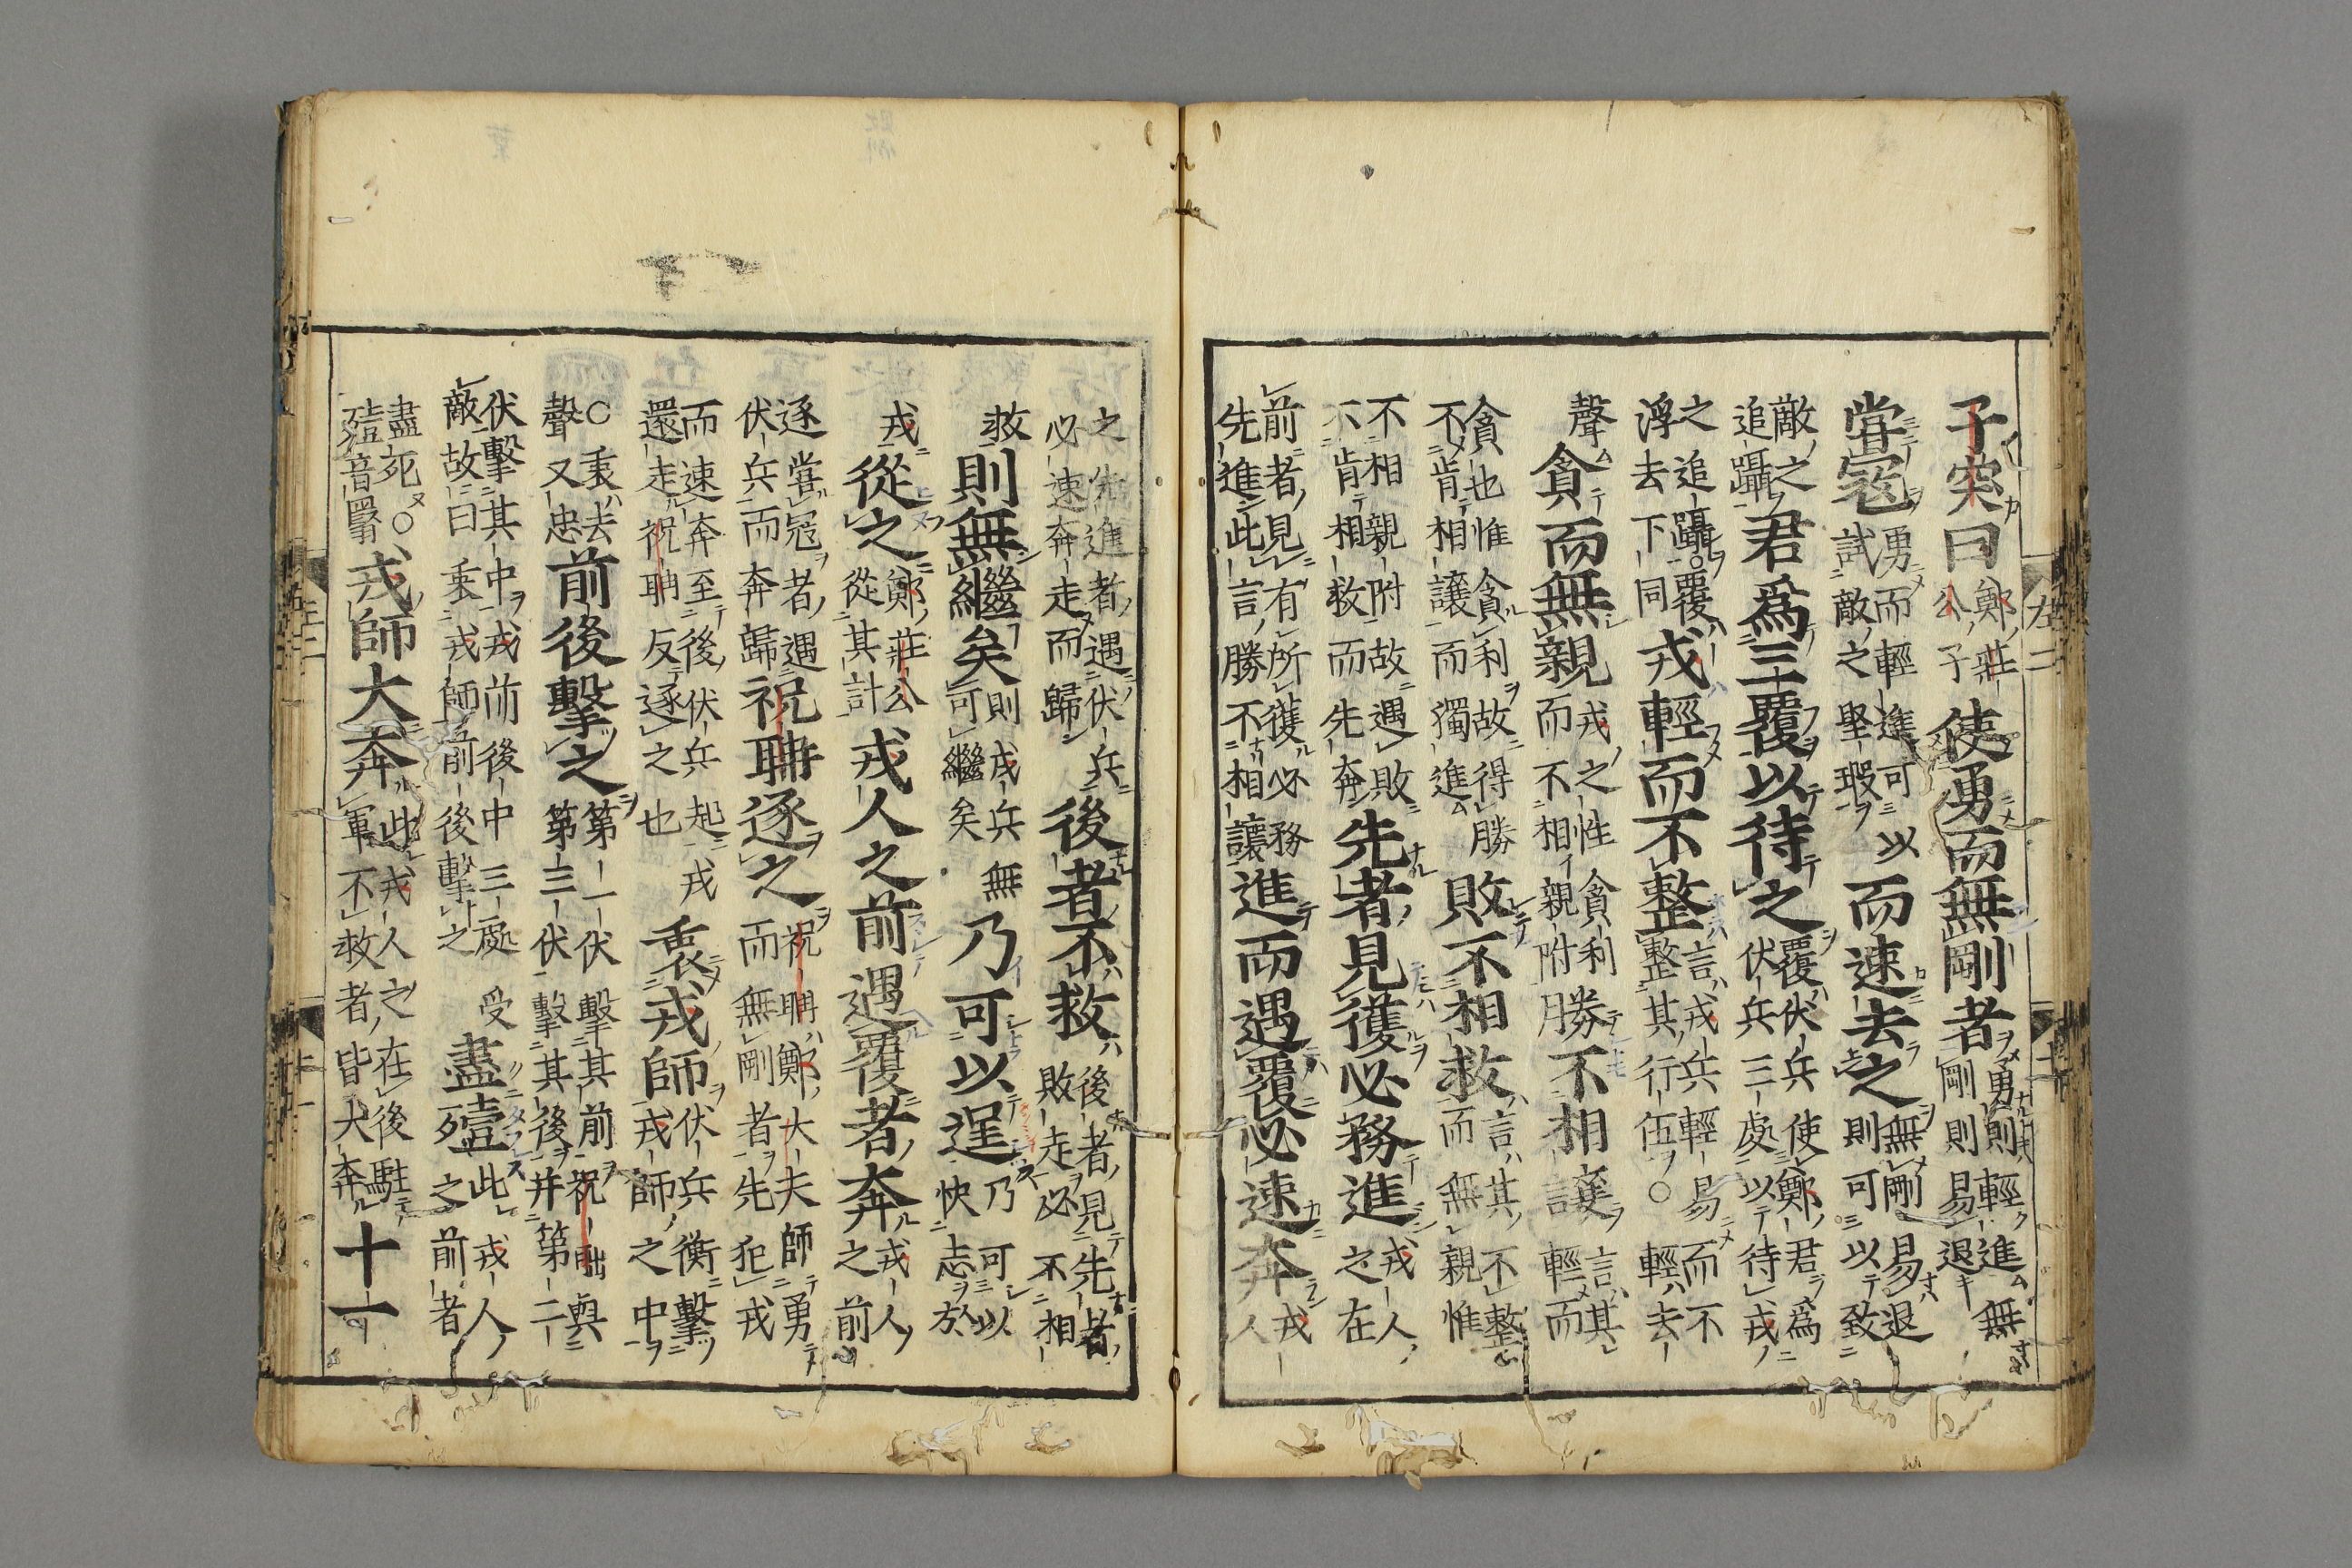 左二
子突曰鄭莊公子使勇而無剛者勇則輕進無剛則易退
嘗寇勇而輕進可以試敵之堅瑕而速去之無剛易退則可以致
敵之追躡君爲三覆以待之覆伏兵使鄭君爲伏兵三處以待戎
之追躡。覆浮去下同戎輕而不整言戎兵輕易而不整其行伍○輕去
聲貪而無親戎之性貪利而不相親附勝不相讓言其輕而
貪也惟貪利故得勝不肯相讓而獨進敗不相救言其不整而無親惟
不相親附故遇敗不肯相救而先奔先者見獲必務進戎人之在
前者見有所獲必務先進此言勝不相讓進而遇覆必速奔戎人
之先進者遇伏兵必速奔走而歸後者不救後者見先者敗走必不相
救則無繼矣則戎兵無可繼矣乃可以逞乃可以快志於
戎從之鄭莊公從其計戎人之前遇覆者奔戎人之前
逐嘗寇者遇伏兵而奔歸祝聃逐之祝聃鄭大夫師勇而無剛者先犯戎
而速奔至後伏兵起戎還走祝聃反逐之也衷戎師伏兵衡擊戎師之中
○衷去聲又忠前後擊之第一伏擊其前祝聃與第三伏擊其後并第二
伏擊其中戎前後中三處受敵故曰衷戎師前後擊之盡殪此戎人之前者
盡死○殪音翳戎師大奔此戎人之在後駐軍不救者皆大奔十一